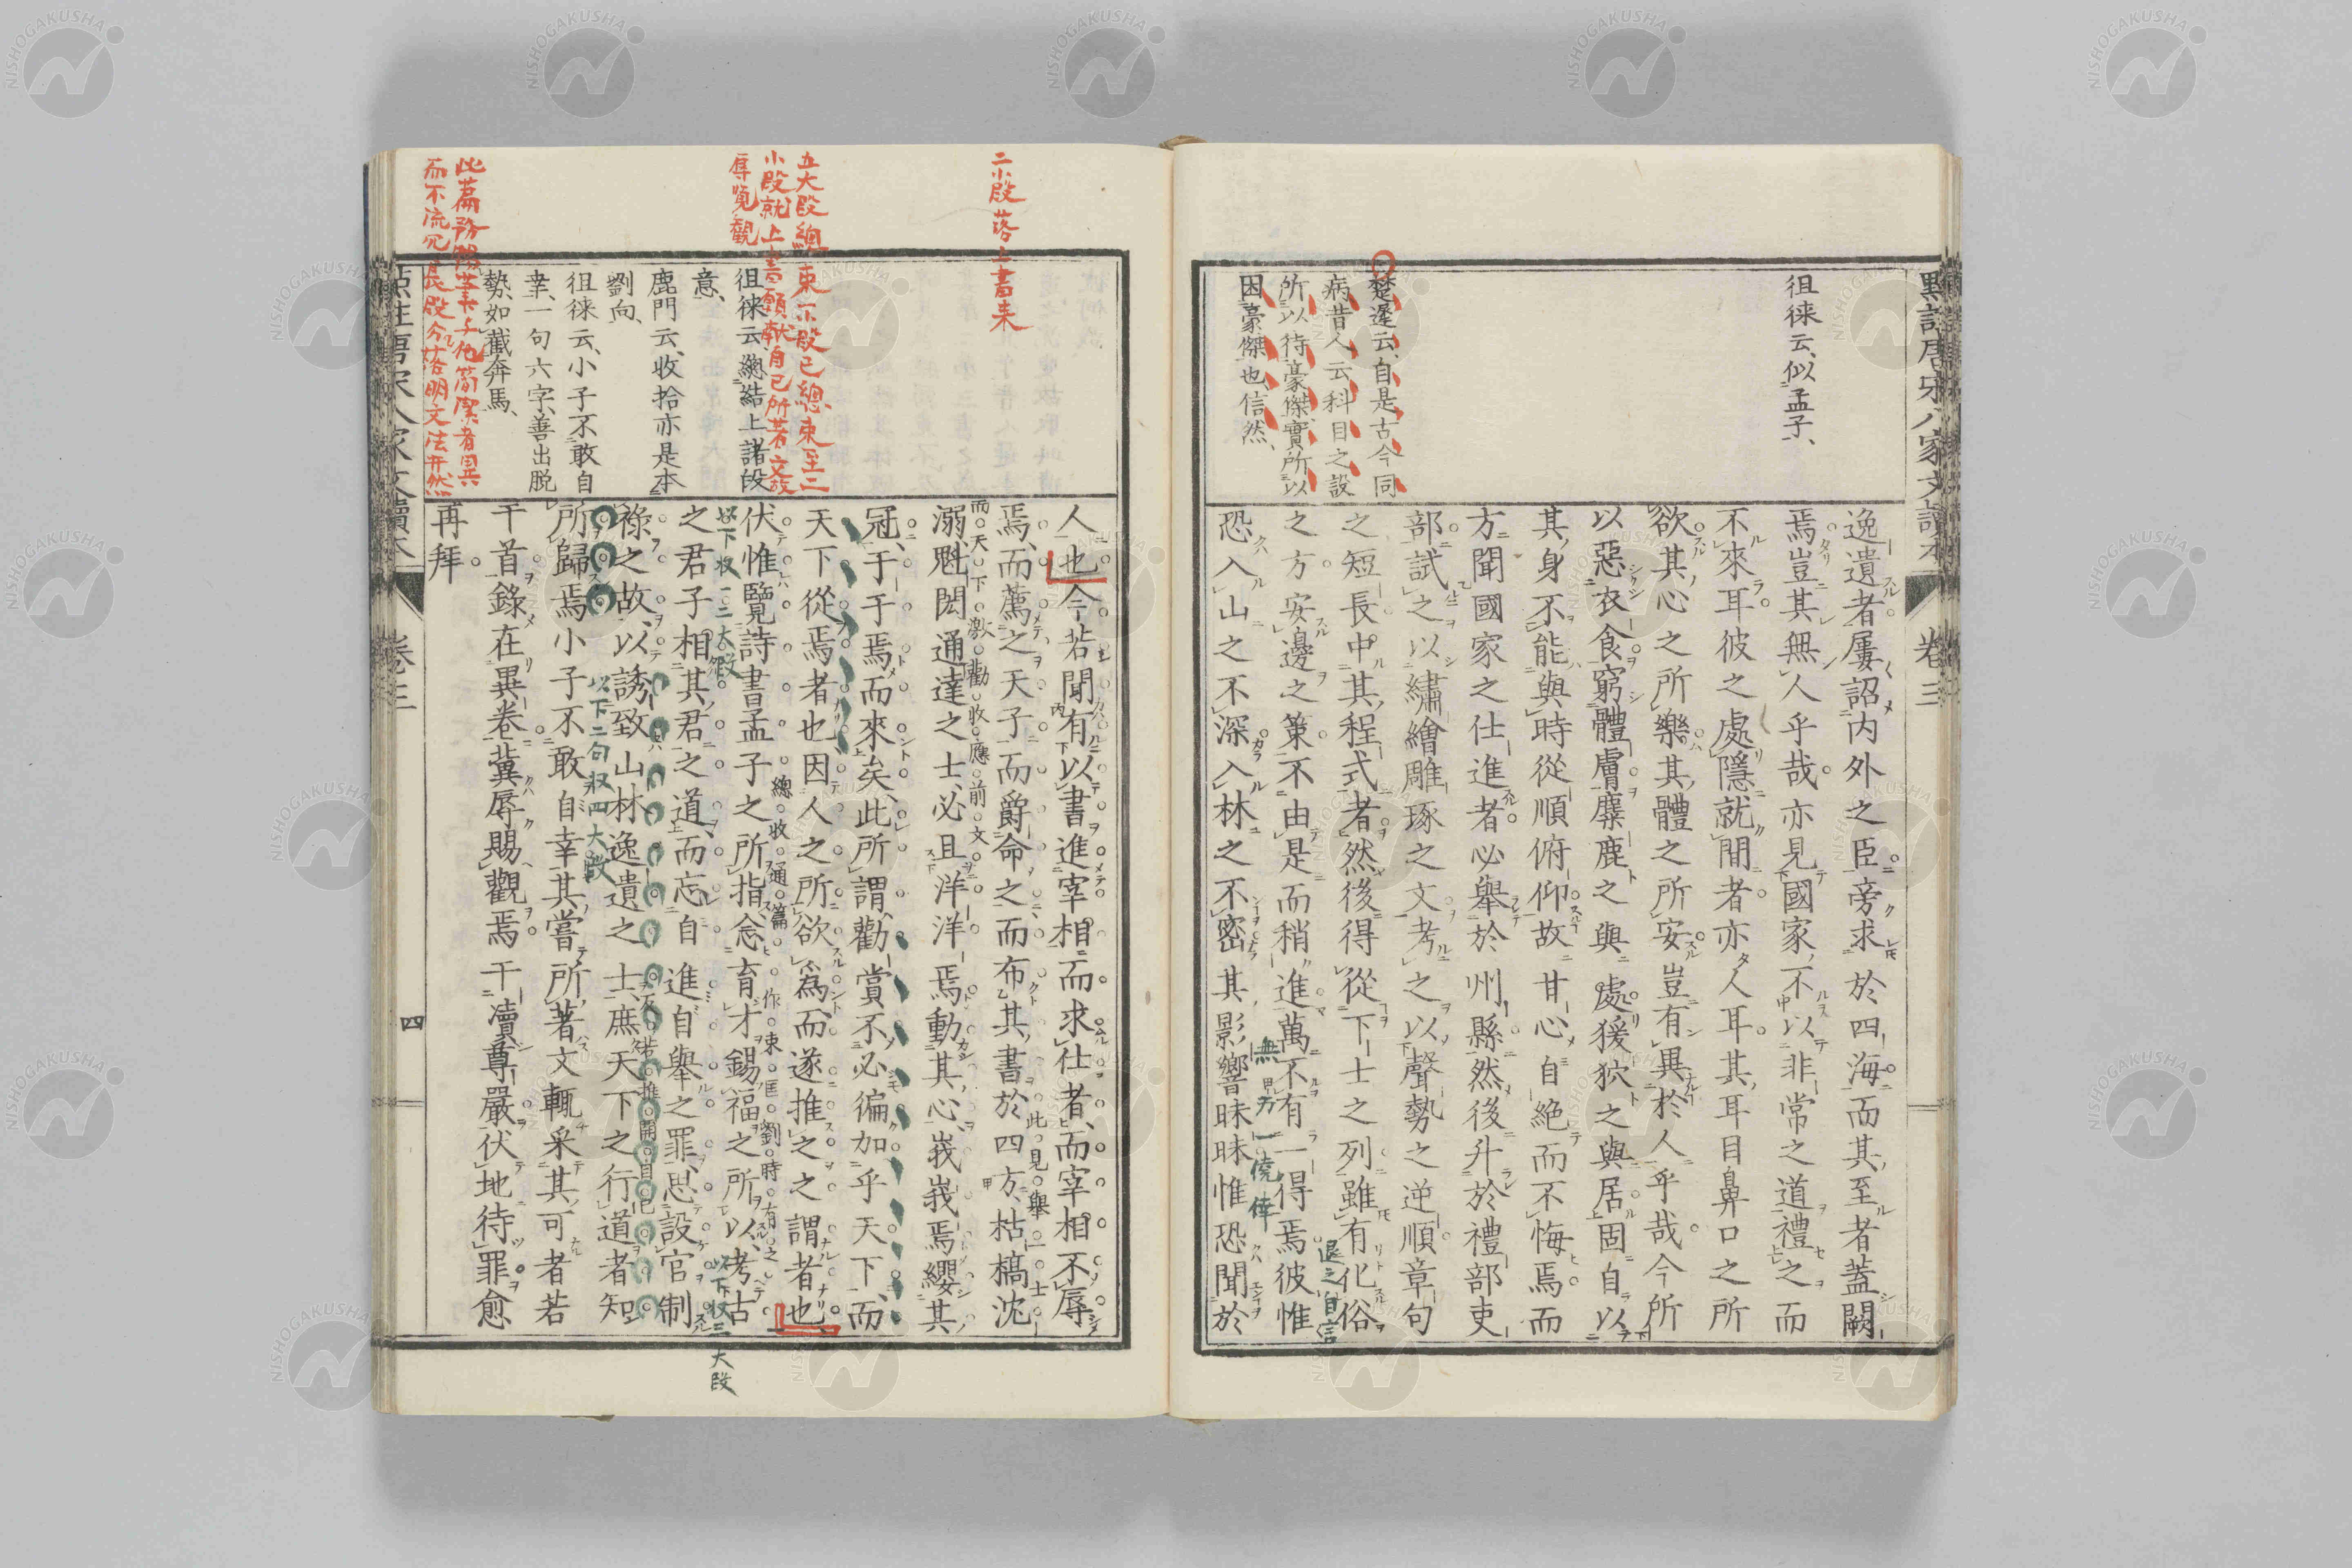 徂徠云、似孟子、
楚遲云、自是古今同
病昔人云科目之設
所以待豪傑、實所以
困豪傑也、信然、
逸遺者、屢詔内外之臣、旁求於四海、而其至者蓋闕
焉、豈其無人乎哉、亦見國家不以非常之道禮之而
不來耳、彼之處隱就閒者、亦人耳、其耳目鼻口之所
欲、其心之所樂、其體之所安、豈有異於人乎哉、今所
以惡衣食、窮體膚、麋鹿之與處、猨狖之與居、固自以
其身不能與時從順俯仰、故甘心自絶而不悔焉、而
方聞國家之仕進者、必舉於州縣、然後升於禮部吏
部、試之以繡繪雕琢之文、考之以聲勢之逆順、章句
之短長、中其程式者、然後得從下士之列、雖有化俗
之方、安邊之策、不由是而稍進、萬不有一得焉、彼惟
恐入山之不深、入林之不密、其影響昧昧、惟恐聞於
無甲万一僥倖
退之自信
卷三
二小段落上書来
五大段總束一小段已總束至二
小段就上書願献自己所若文故
辱覧觀
徂徠云、總結上諸段
意、
鹿門云、收拾亦是本
劉向、
徂徠云、小子不敢自
幸、一句六字、善出脱
勢、如截奔馬、
而不流冗長段分落明文法井然
人也、今若聞有以書進宰相而求仕者、而宰相不辱
焉、而薦之天子、而爵命之、而布其書於四方、枯槁沈
溺、魁閎通達之士、必且洋洋焉動其心、峩峩焉纓其
冠、于于焉而來矣、此所謂勸賞不必徧加乎天下、而
天下從焉者也、因人之所欲爲而遂推之之謂者也、
伏惟覽詩書孟子之所指、念育才錫福之所以、考古
之君子相其君之道、而忘自進自舉之罪、思設官制
祿之故、以誘致山林逸遺之士、庶天下之行道者知
所歸焉、小子不敢自幸、其嘗所著文、輒采其可者若
干首、錄在異卷、冀辱賜觀焉、干瀆尊嚴、伏地待罪、愈
再拜。
而天下激勸收應前文
此見舉一士
總收通篇作束匡劉時有之
以下收一二大段
以下收三大段
以下二句収四大段
卷三
四